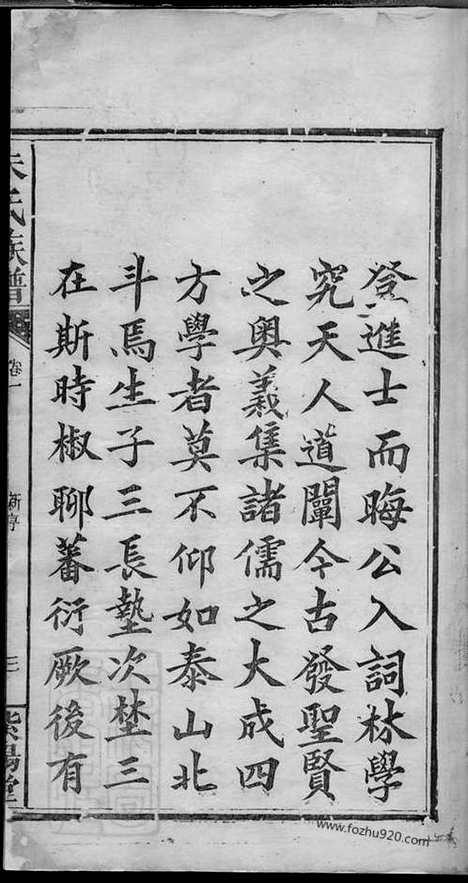 登進士而晦公入詞林學
究天人道闡今古發聖賢
之奧義集諸儒之大成四
方學者莫不仰如泰山北
斗焉生子三長塾次埜三
在斯時椒聊蕃衍厥後有
朱氏族譜 卷一 新序 三 紫陽堂
www.fozhu920.com